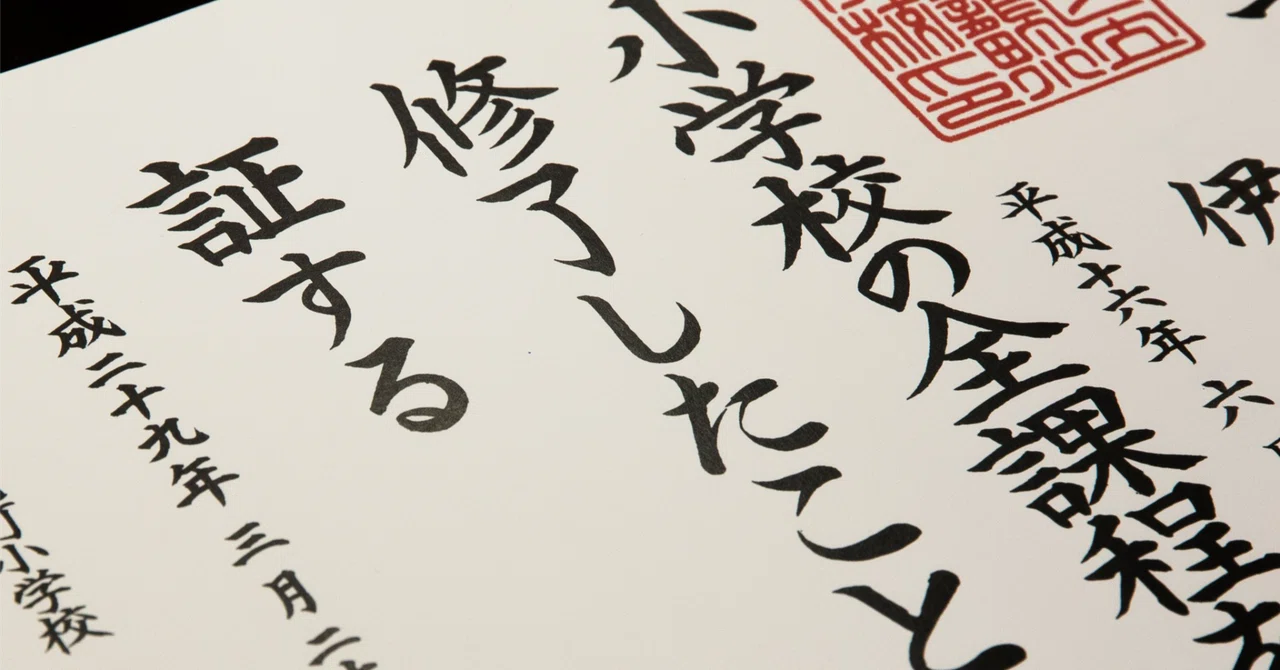 伊
平成十六年 六
小学校の全課程を
修了したこと
証する
平成二十九年 三月 二十
小学校